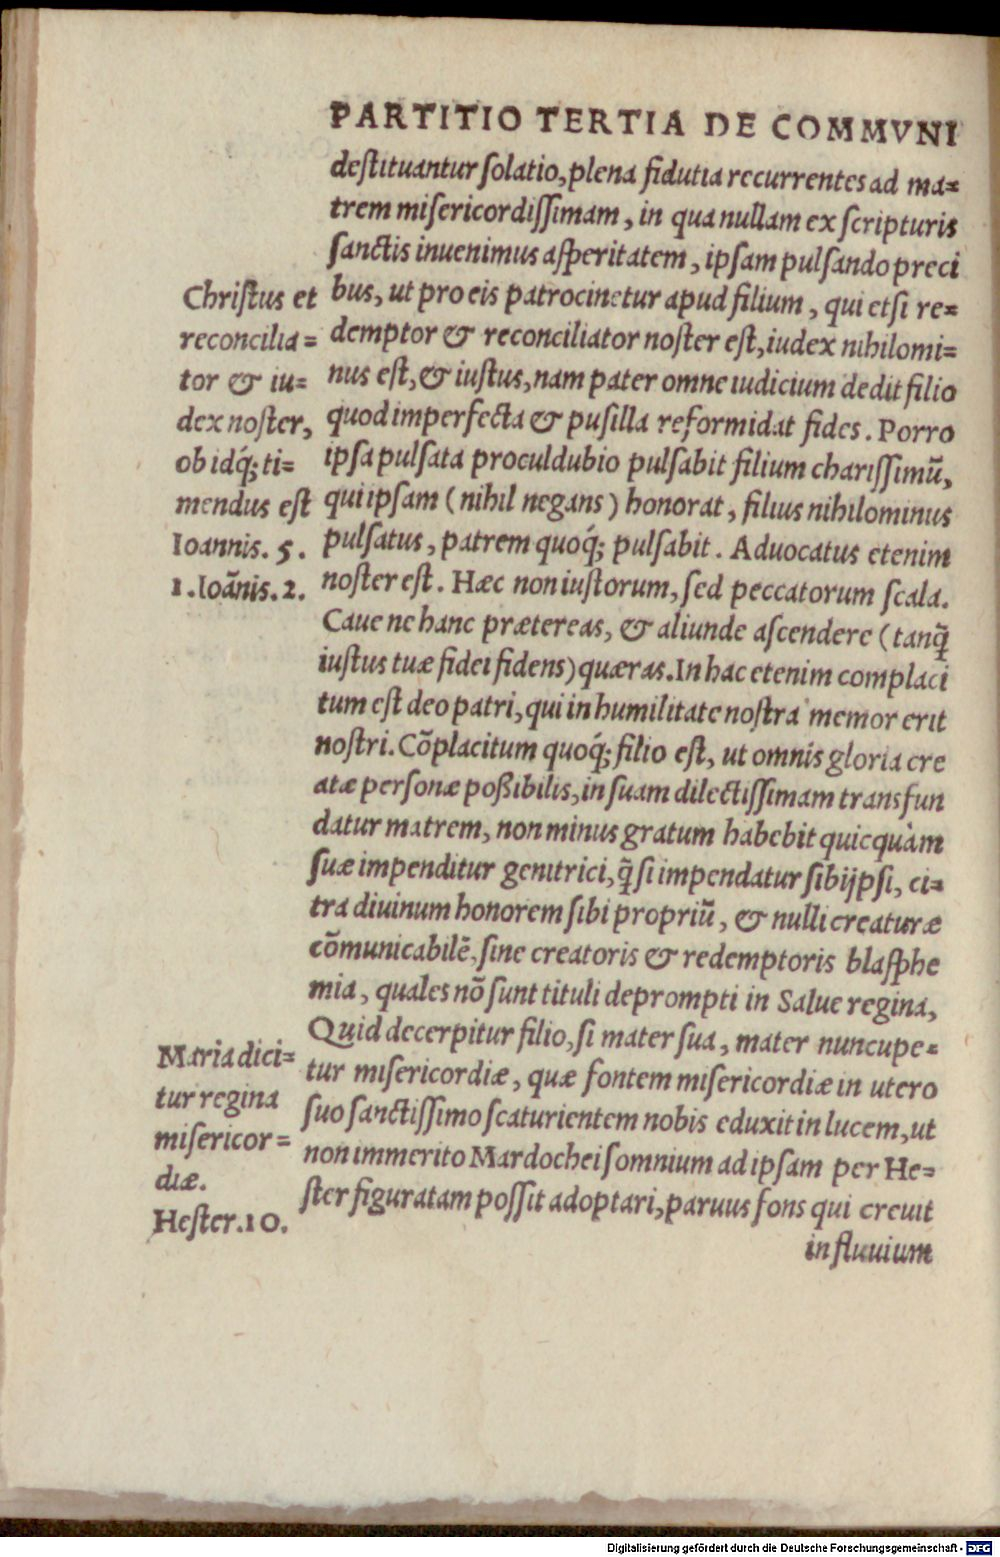 PARTITIO TERTIA DE COMMVNI
destituantur solatio, plena fidutia recurrentes ad ma=
trem misericordissimam, in qua nullam ex scripturis
sanctis inuenimus asperitatem, ipsam pulsando preci
bus, ut pro eis patrocinetur apud filium, qui etsi re=
demptor & reconciliator noster est, iudex nihilomi=
nus est, & iustus, nam pater omne iudicium dedit filio
quod imperfecta & pusilla reformidat fides. Porro
ipsa pulsata proculdubio pulsabit filium charissimū,
qui ipsam (nihil negans) honorat, filius nihilominus
pulsatus, patrem quoq́; pulsabit. Aduocatus etenim
noster est. Hæc non iustorum, sed peccatorum scala.
Caue ne hanc prætereas, & aliunde ascendere (tanq̄
iustus tuæ fidei fidens) quæras. In hac etenim complaci
tum est deo patri, qui in humilitate nostra memor erit
nostri. Cōplacitum quoq́; filio est, ut omnis gloria cre
atæ personæ poßibilis, in suam dilectissimam transfun
datur matrem, non minus gratum habebit quicquàm
suæ impenditur genitrici, q̄ si impendatur sibijpsi, ci=
tra diuinum honorem sibi propriū, & nulli creaturæ
cōmunicabilē, sine creatoris & redemptoris blasphe
mia, quales nō sunt tituli deprompti in Salue regina,
Quid decerpitur filio, si mater sua, mater nuncupe=
tur misericordiæ, quæ fontem misericordiæ in utero
suo sanctissimo scaturientem nobis eduxit in lucem, ut
non immerito Mardochei somnium ad ipsam per He=
ster figuratam possit adoptari, paruus fons qui creuit
in fluuium
Christus et
reconcilia=
tor & iu=
dex noster,
ob idq́; ti=
mendus est
Ioannis. 5.
1. Ioānis. 2.
Maria dici=
tur regina
misericor=
diæ.
Hester. 10.
Digitalisierung gefördert durch die Deutsche Forschungsgemeinschaft - DFG